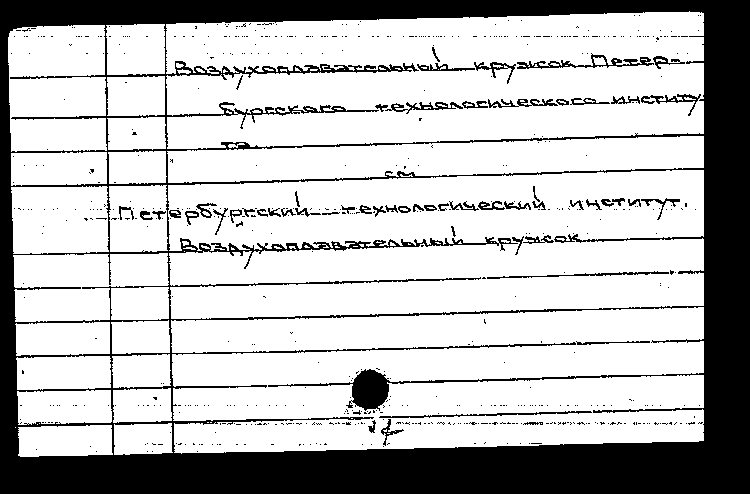 Воздухоплавательный кружок Петер-
бургского технологического институ
та.
см
Петербургский технологический институт.
Воздухоплавательный кружок